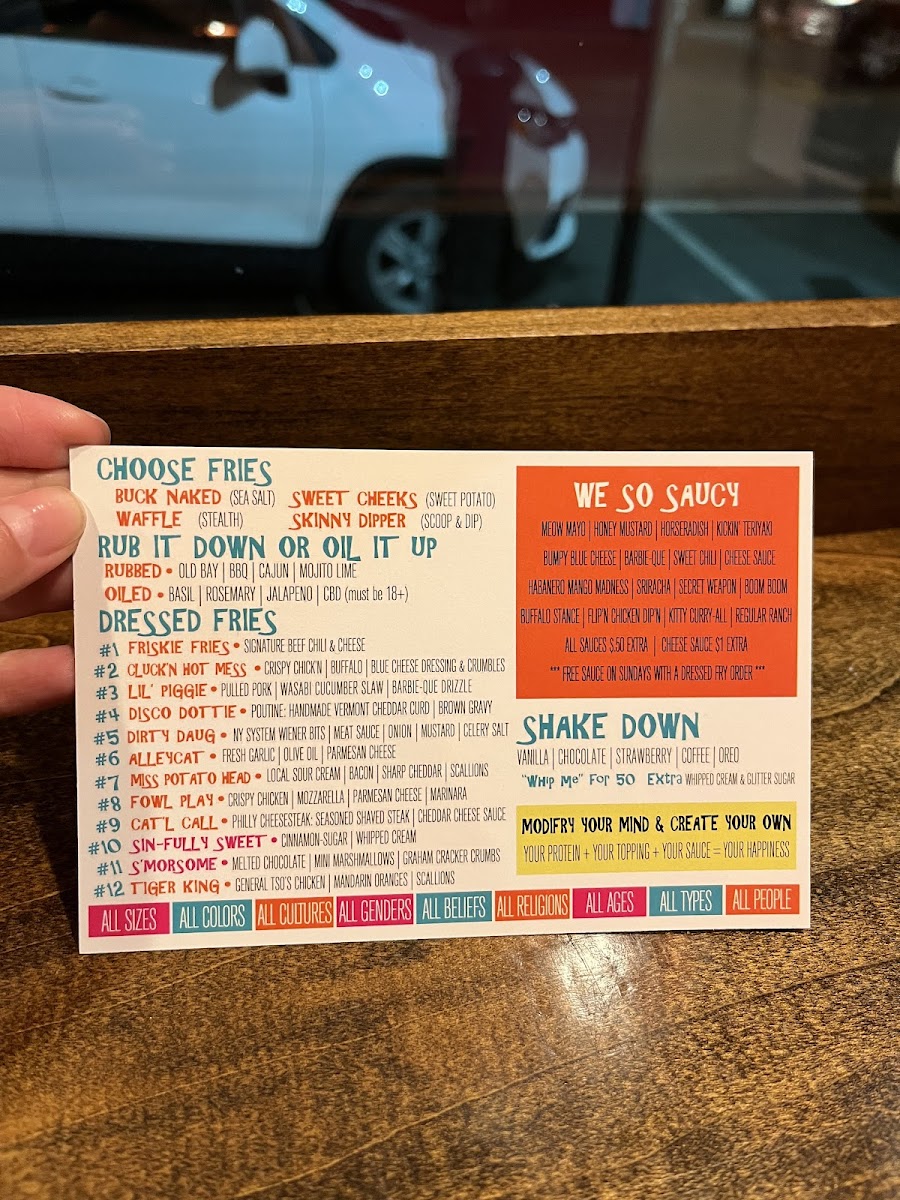 CHOOSE FRIES
BUCK NAKED (SEA SALT) SWEET CHEEKS (SWEET POTATO)
WAFFLE (STEALTH) SKINNY DIPPER (SCOOP & DIP)
RUB IT DOWN OR OIL IT UP
RUBBED • OLD BAY | BBQ | CAJUN | MOJITO LIME
OILED • BASIL | ROSEMARY | JALAPENO | CBD (must be 18+)
DRESSED FRIES
#1 FRISKIE FRIES • SIGNATURE BEEF CHILI & CHEESE
#2 CLUCK'N HOT MESS • CRISPY CHICK'N | BUFFALO | BLUE CHEESE DRESSING & CRUMBLES
#3 LIL' PIGGIE • PULLED PORK | WASABI CUCUMBER SLAW | BARBIE-QUE DRIZZLE
#4 DISCO DOTTIE • POUTINE: HANDMADE VERMONT CHEDDAR CURD | BROWN GRAVY
#5 DIRTY DAUG • NY SYSTEM WIENER BITS | MEAT SAUCE | ONION | MUSTARD | CELERY SALT
#6 ALLEYCAT • FRESH GARLIC | OLIVE OIL | PARMESAN CHEESE
#7 MISS POTATO HEAD • LOCAL SOUR CREAM | BACON | SHARP CHEDDAR | SCALLIONS
#8 FOWL PLAY • CRISPY CHICKEN | MOZZARELLA | PARMESAN CHEESE | MARINARA
#9 CAT'L CALL • PHILLY CHEESESTEAK: SEASONED SHAVED STEAK | CHEDDAR CHEESE SAUCE
#10 SIN-FULLY SWEET • CINNAMON-SUGAR | WHIPPED CREAM
#11 S'MORSOME • MELTED CHOCOLATE | MINI MARSHMALLOWS | GRAHAM CRACKER CRUMBS
#12 TIGER KING • GENERAL TSO'S CHICKEN | MANDARIN ORANGES | SCALLIONS
WE SO SAUCY
MEOW MAYO | HONEY MUSTARD | HORSERADISH | KICKIN' TERIYAKI
BUMPY BLUE CHEESE | BARBIE-QUE | SWEET CHILI | CHEESE SAUCE
HABANERO MANGO MADNESS | SRIRACHA | SECRET WEAPON | BOOM BOOM
BUFFALO STANCE | FLIP'N CHICKEN DIP'N | KITTY CURRY-ALL | REGULAR RANCH
ALL SAUCES $.50 EXTRA | CHEESE SAUCE $1 EXTRA
*** FREE SAUCE ON SUNDAYS WITH A DRESSED FRY ORDER ***
SHAKE DOWN
VANILLA | CHOCOLATE | STRAWBERRY | COFFEE | OREO
"Whip Me" For 50 Extra WHIPPED CREAM & GLITTER SUGAR
MODIFRY YOUR MIND & CREATE YOUR OWN
YOUR PROTEIN + YOUR TOPPING + YOUR SAUCE = YOUR HAPPINESS
ALL SIZES ALL COLORS ALL CULTURES ALL GENDERS ALL BELIEFS ALL RELIGIONS ALL AGES ALL TYPES ALL PEOPLE